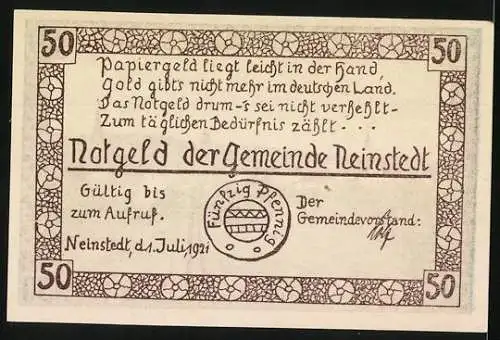 50 50
Papiergeld liegt leicht in der Hand,
Gold gibt's nicht mehr im deutschen Land.
Das Notgeld drum -'s sei nicht verhehlt-
Zum täglichen Bedürfnis zählt - - -
Notgeld der Gemeinde Neinstedt
Gültig bis
zum Aufruf.
Fünfzig Pfennig
Der
Gemeindevorstand:
Neinstedt, d. 1. Juli 1921
50 50